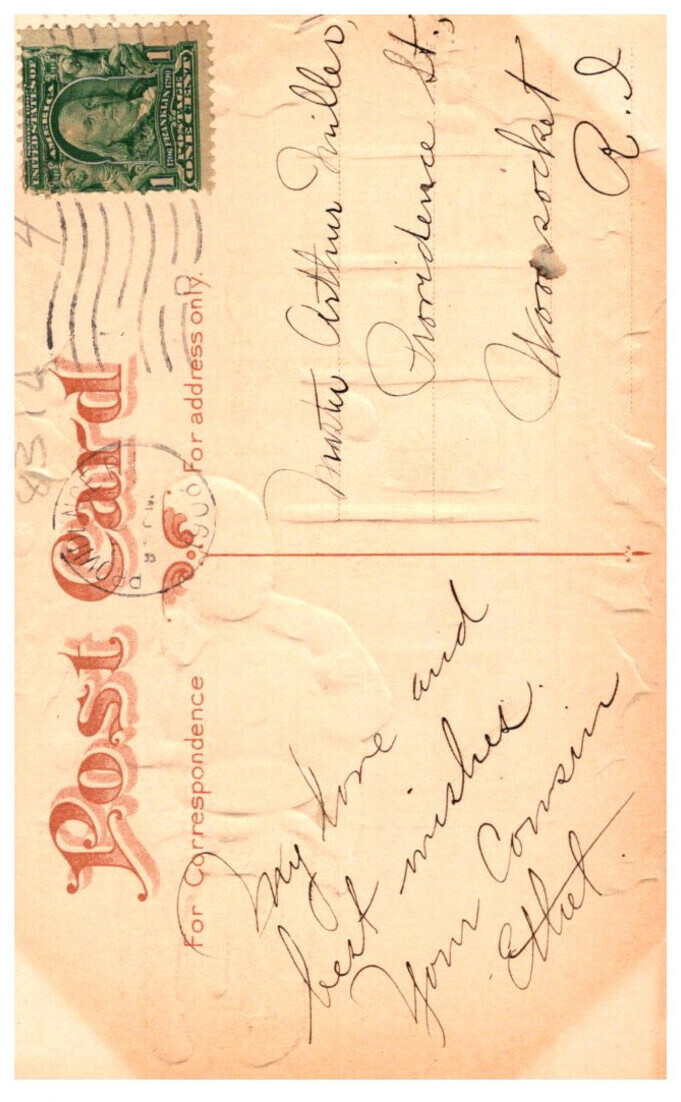 Post Card
For Correspondence
For address only.
UNITED STATES OF
AMERICA
1706 FRANKLIN 1790
POSTAGE
1 ONE CENT 1
My love and
best wishes.
Your Cousin
Ethel
Master Arthur Miller,
Providence St.,
Woonsocket
R.I